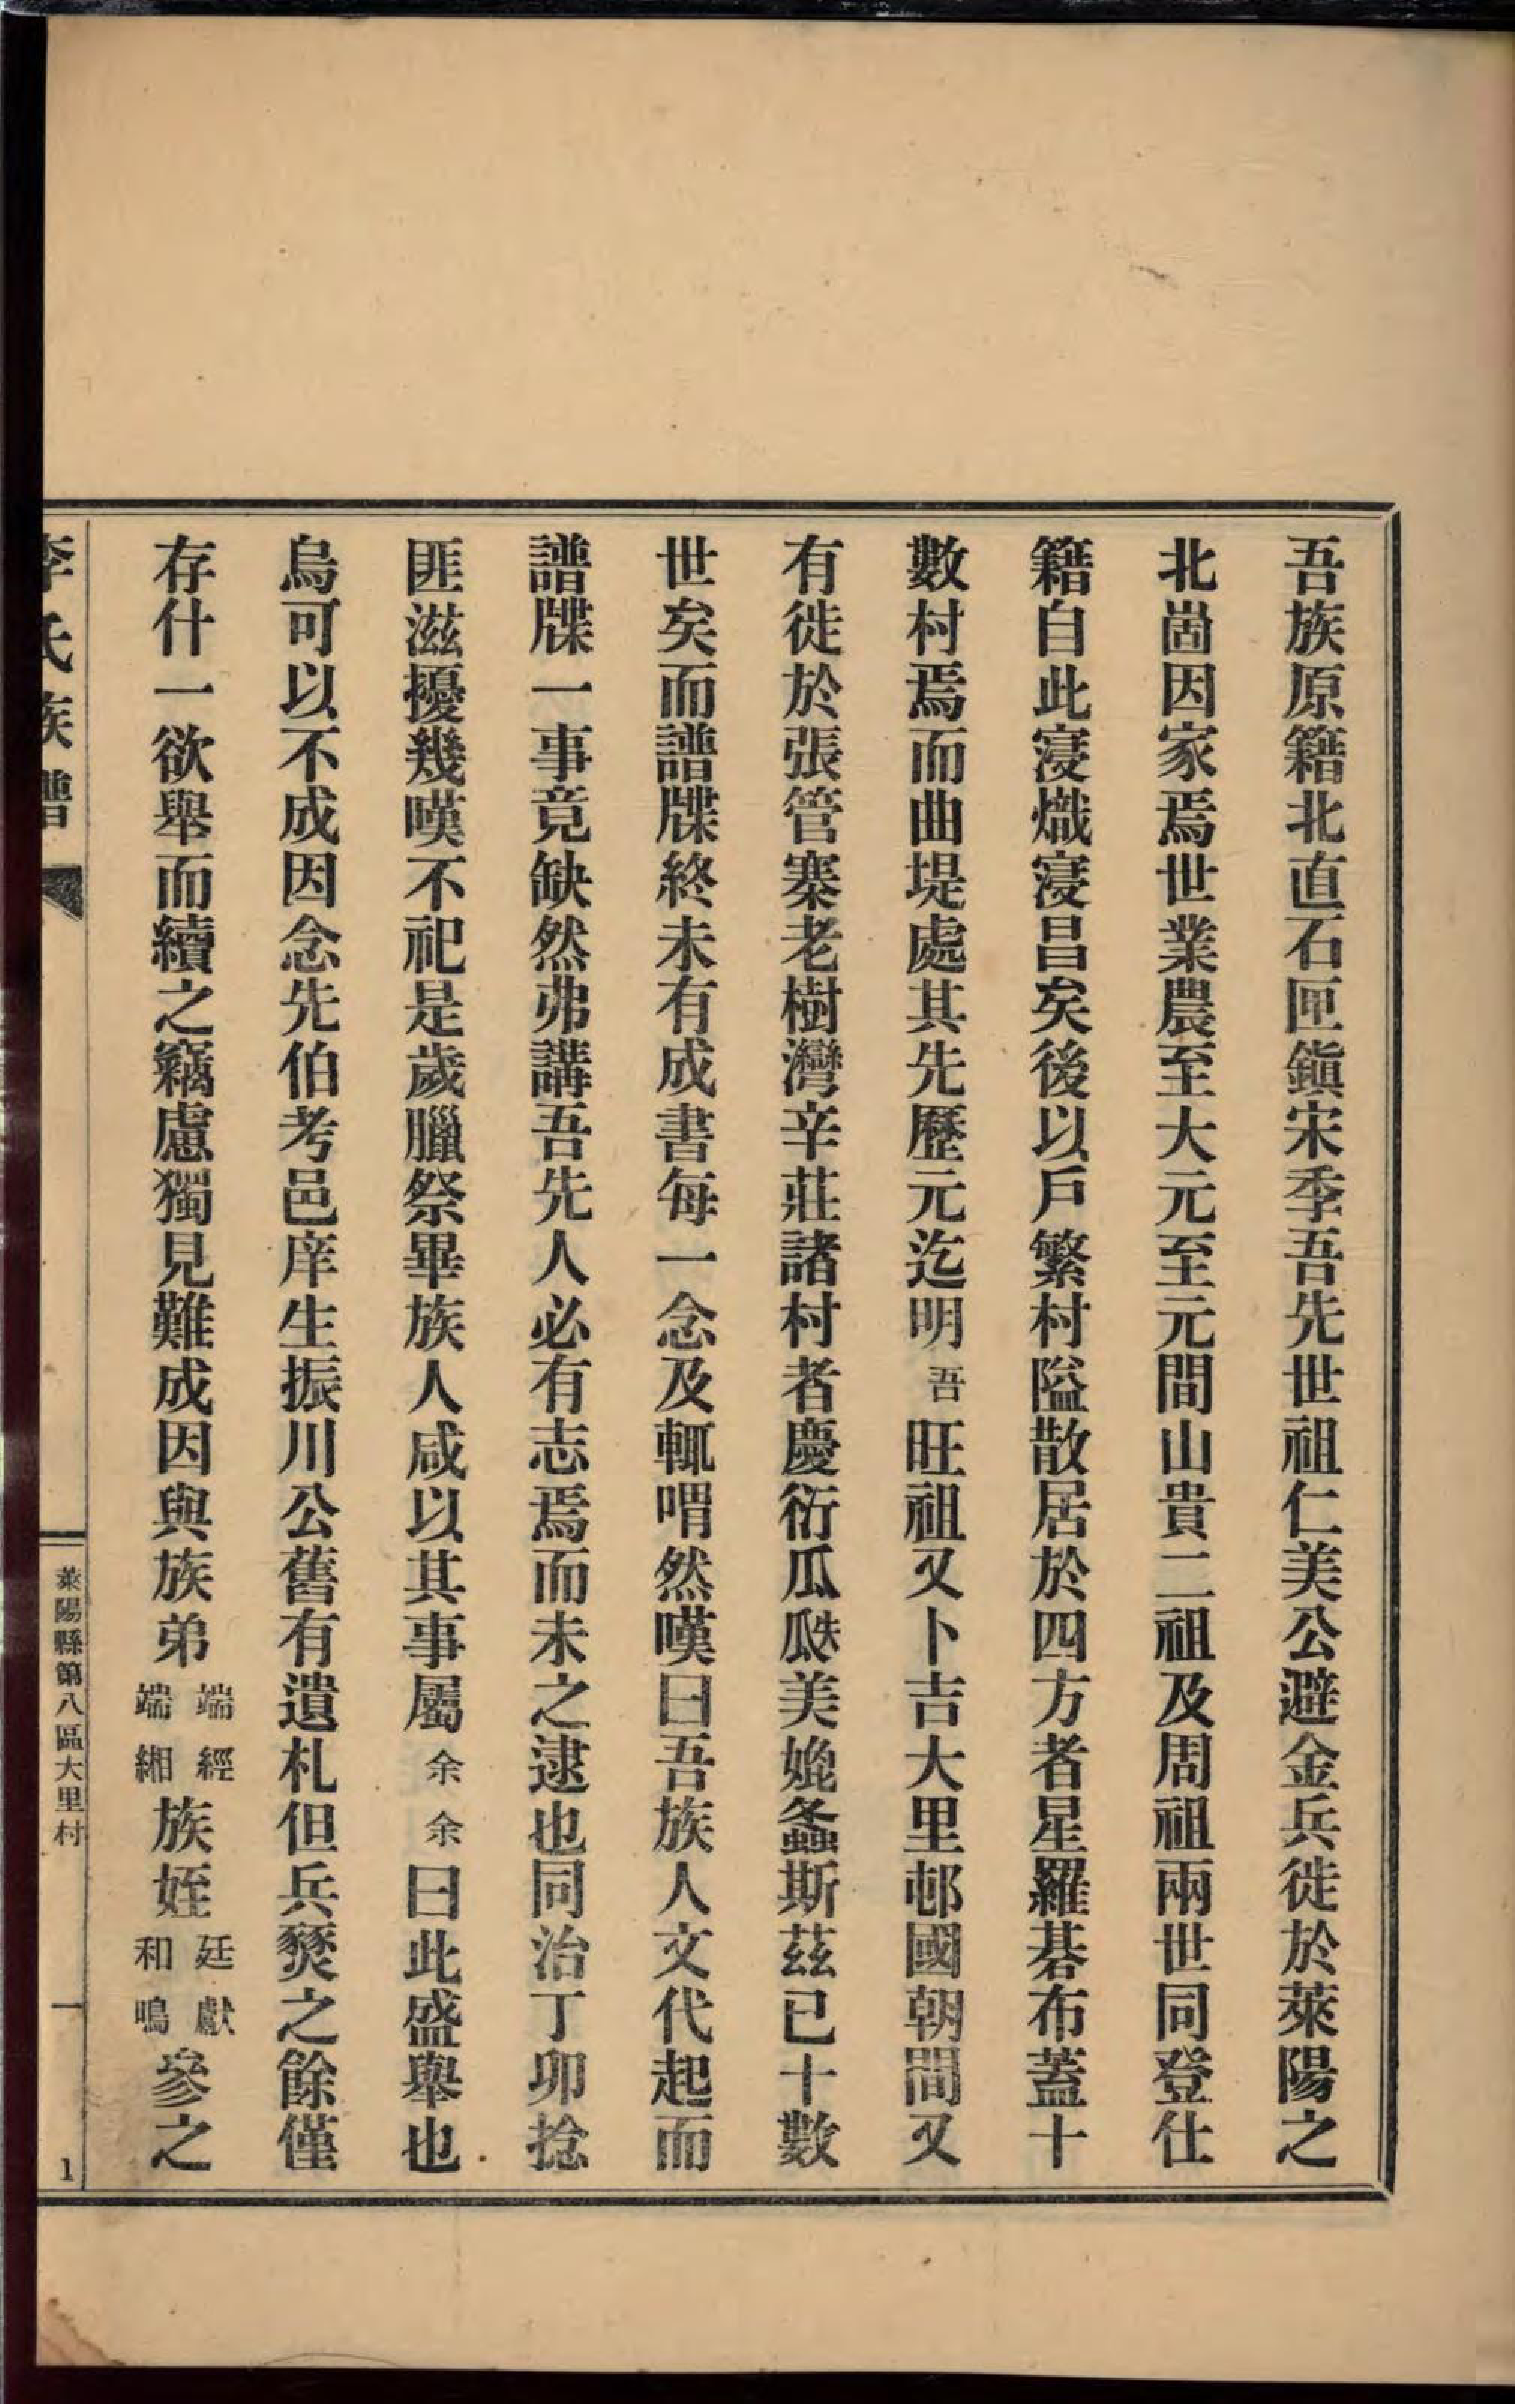 吾族原籍北直石匣鎮宋季吾先世祖仁美公避金兵徙於萊陽之
北崮因家焉世業農至大元至元間山貴二祖及周祖兩世同登仕
籍自此寖熾寖昌矣後以戶繁村隘散居於四方者星羅碁布蓋十
數村焉而曲堤處其先歷元迄明吾旺祖又卜吉大里邨國朝間又
有徙於張管寨老樹灣辛莊諸村者慶衍瓜瓞美媲螽斯茲已十數
世矣而譜牒終未有成書每一念及輒喟然嘆曰吾族人文代起而
譜牒一事竟缺然弗講吾先人必有志焉而未之逮也同治丁卯捻
匪滋擾幾嘆不祀是歲臘祭畢族人咸以其事屬余余曰此盛舉也
烏可以不成因念先伯考邑庠生振川公舊有遺札但兵燹之餘僅
存什一欲舉而續之竊慮獨見難成因與族弟端經端緗族姪廷獻和鳴參之
李氏族譜
萊陽縣第八區大里村
一
1